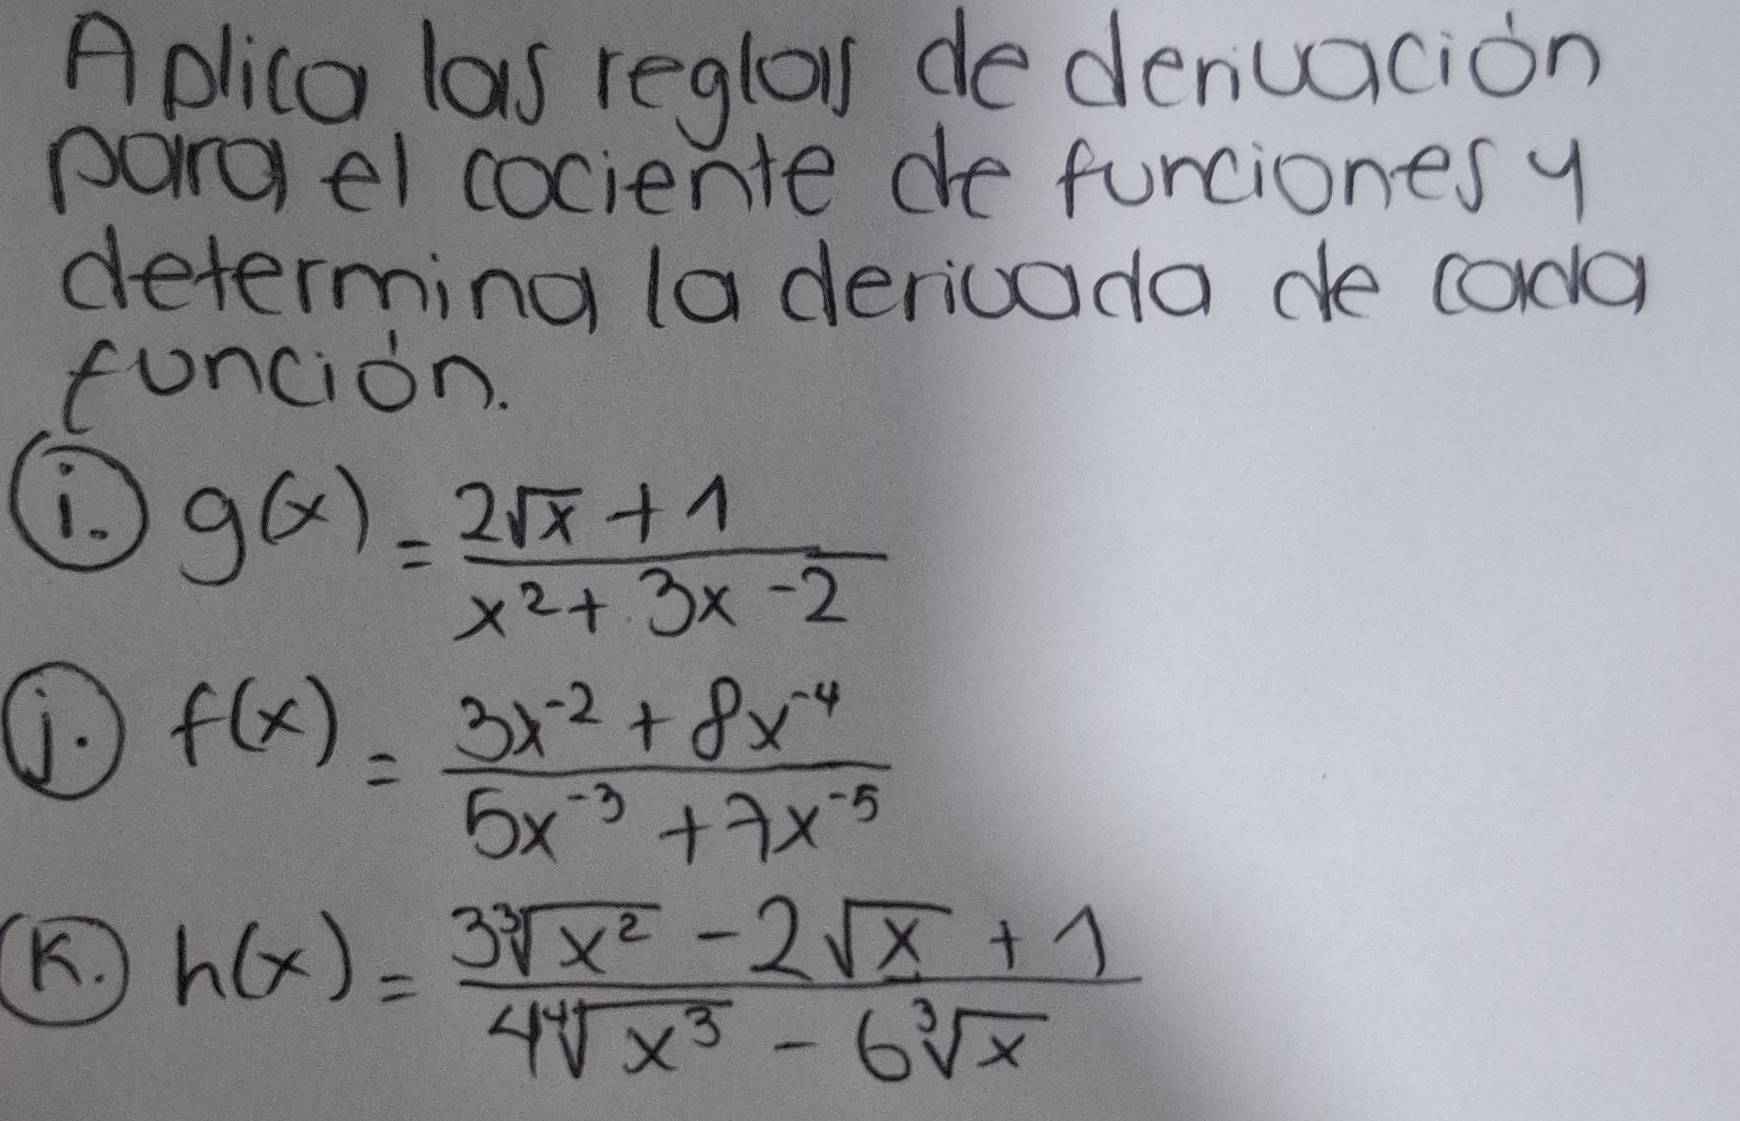 Aplica las reglas de derivación
para el cociente de funciones y
determina la derivada de cada
función.
i. g(x) = \frac{2\sqrt{x} + 1}{x^2 + 3x - 2}
j. f(x) = \frac{3x^{-2} + 8x^{-4}}{5x^{-3} + 7x^{-5}}
K. h(x) = \frac{3\sqrt[3]{x^2} - 2\sqrt{x} + 1}{4\sqrt[4]{x^3} - 6\sqrt[3]{x}}